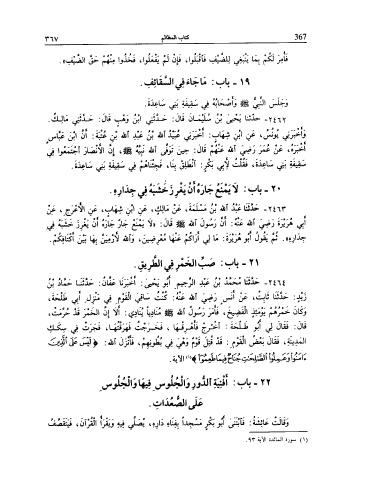 367 كتاب المظالم ٣٦٧
فَأُمِرَ لَكُمْ بِمَا يَنْبَغِي لِلضَّيْفِ فَاقْبَلُوا، فَإِنْ لَمْ يَفْعَلُوا، فَخُذُوا مِنْهُمْ حَقَّ الضَّيْفِ».
١٩ - باب: مَا جَاءَ فِي السَّقَائِفِ.
وَجَلَسَ النَّبِيُّ ﷺ وَأَصْحَابُهُ فِي سَقِيفَةِ بَنِي سَاعِدَةَ.
٢٤٦٢- حَدَّثَنَا يَحْيَى بْنُ سُلَيْمَانَ قَالَ: حَدَّثَنِي ابْنُ وَهْبٍ قَالَ: حَدَّثَنِي مَالِكٌ.
وَأَخْبَرَنِي يُونُسُ، عَنِ ابْنِ شِهَابٍ: أَخْبَرَنِي عُبَيْدُ اللهِ بْنُ عَبْدِ اللهِ بْنِ عُتْبَةَ: أَنَّ ابْنَ عَبَّاسٍ
أَخْبَرَهُ، عَنْ عُمَرَ رَضِيَ اللهُ عَنْهُمْ قَالَ: حِينَ تَوَفَّى اللهُ نَبِيَّهُ ﷺ، إِنَّ الْأَنْصَارَ اجْتَمَعُوا فِي
سَقِيفَةِ بَنِي سَاعِدَةَ، فَقُلْتُ لِأَبِي بَكْرٍ: انْطَلِقْ بِنَا، فَجِئْنَاهُمْ فِي سَقِيفَةِ بَنِي سَاعِدَةَ.
٢٠ - باب: لَا يَمْنَعُ جَارٌ جَارَهُ أَنْ يَغْرِزَ خَشَبَهُ فِي جِدَارِهِ.
٢٤٦٣- حَدَّثَنَا عَبْدُ اللهِ بْنُ مَسْلَمَةَ، عَنْ مَالِكٍ، عَنِ ابْنِ شِهَابٍ، عَنِ الْأَعْرَجِ، عَنْ
أَبِي هُرَيْرَةَ رَضِيَ اللهُ عَنْهُ: أَنَّ رَسُولَ اللهِ ﷺ قَالَ: «لَا يَمْنَعْ جَارٌ جَارَهُ أَنْ يَغْرِزَ خَشَبَهُ فِي
جِدَارِهِ». ثُمَّ يَقُولُ أَبُو هُرَيْرَةَ: مَا لِي أَرَاكُمْ عَنْهَا مُعْرِضِينَ، وَاللهِ لَأَرْمِيَنَّ بِهَا بَيْنَ أَكْتَافِكُمْ.
٢١ - باب: صَبِّ الْخَمْرِ فِي الطَّرِيقِ.
٢٤٦٤- حَدَّثَنَا مُحَمَّدُ بْنُ عَبْدِ الرَّحِيمِ أَبُو يَحْيَى: أَخْبَرَنَا عَفَّانُ: حَدَّثَنَا حَمَّادُ بْنُ
زَيْدٍ: حَدَّثَنَا ثَابِتٌ، عَنْ أَنَسٍ رَضِيَ اللهُ عَنْهُ: كُنْتُ سَاقِيَ الْقَوْمِ فِي مَنْزِلِ أَبِي طَلْحَةَ،
وَكَانَ خَمْرُهُمْ يَوْمَئِذٍ الْفَضِيخَ، فَأَمَرَ رَسُولُ اللهِ ﷺ مُنَادِيًا يُنَادِي: أَلَا إِنَّ الْخَمْرَ قَدْ حُرِّمَتْ،
قَالَ: فَقَالَ لِي أَبُو طَلْحَةَ: اخْرُجْ فَأَهْرِقْهَا، فَخَرَجْتُ فَهَرَقْتُهَا، فَجَرَتْ فِي سِكَكِ
الْمَدِينَةِ، فَقَالَ بَعْضُ الْقَوْمِ: قَدْ قُتِلَ قَوْمٌ وَهِيَ فِي بُطُونِهِمْ، فَأَنْزَلَ اللهُ: ﴿لَيْسَ عَلَى الَّذِينَ
ءَامَنُوا وَعَمِلُوا الصَّالِحَاتِ جُنَاحٌ فِيمَا طَعِمُوا﴾(١) الآية.
٢٢ - باب: أَفْنِيَةِ الدُّورِ وَالْجُلُوسِ فِيهَا وَالْجُلُوسِ
عَلَى الصُّعُدَاتِ.
وَقَالَتْ عَائِشَةُ: فَابْتَنَى أَبُو بَكْرٍ مَسْجِدًا بِفِنَاءِ دَارِهِ، يُصَلِّي فِيهِ وَيَقْرَأُ الْقُرْآنَ، فَيَتَقَصَّفُ
(١) سورة المائدة الآية ٩٣.